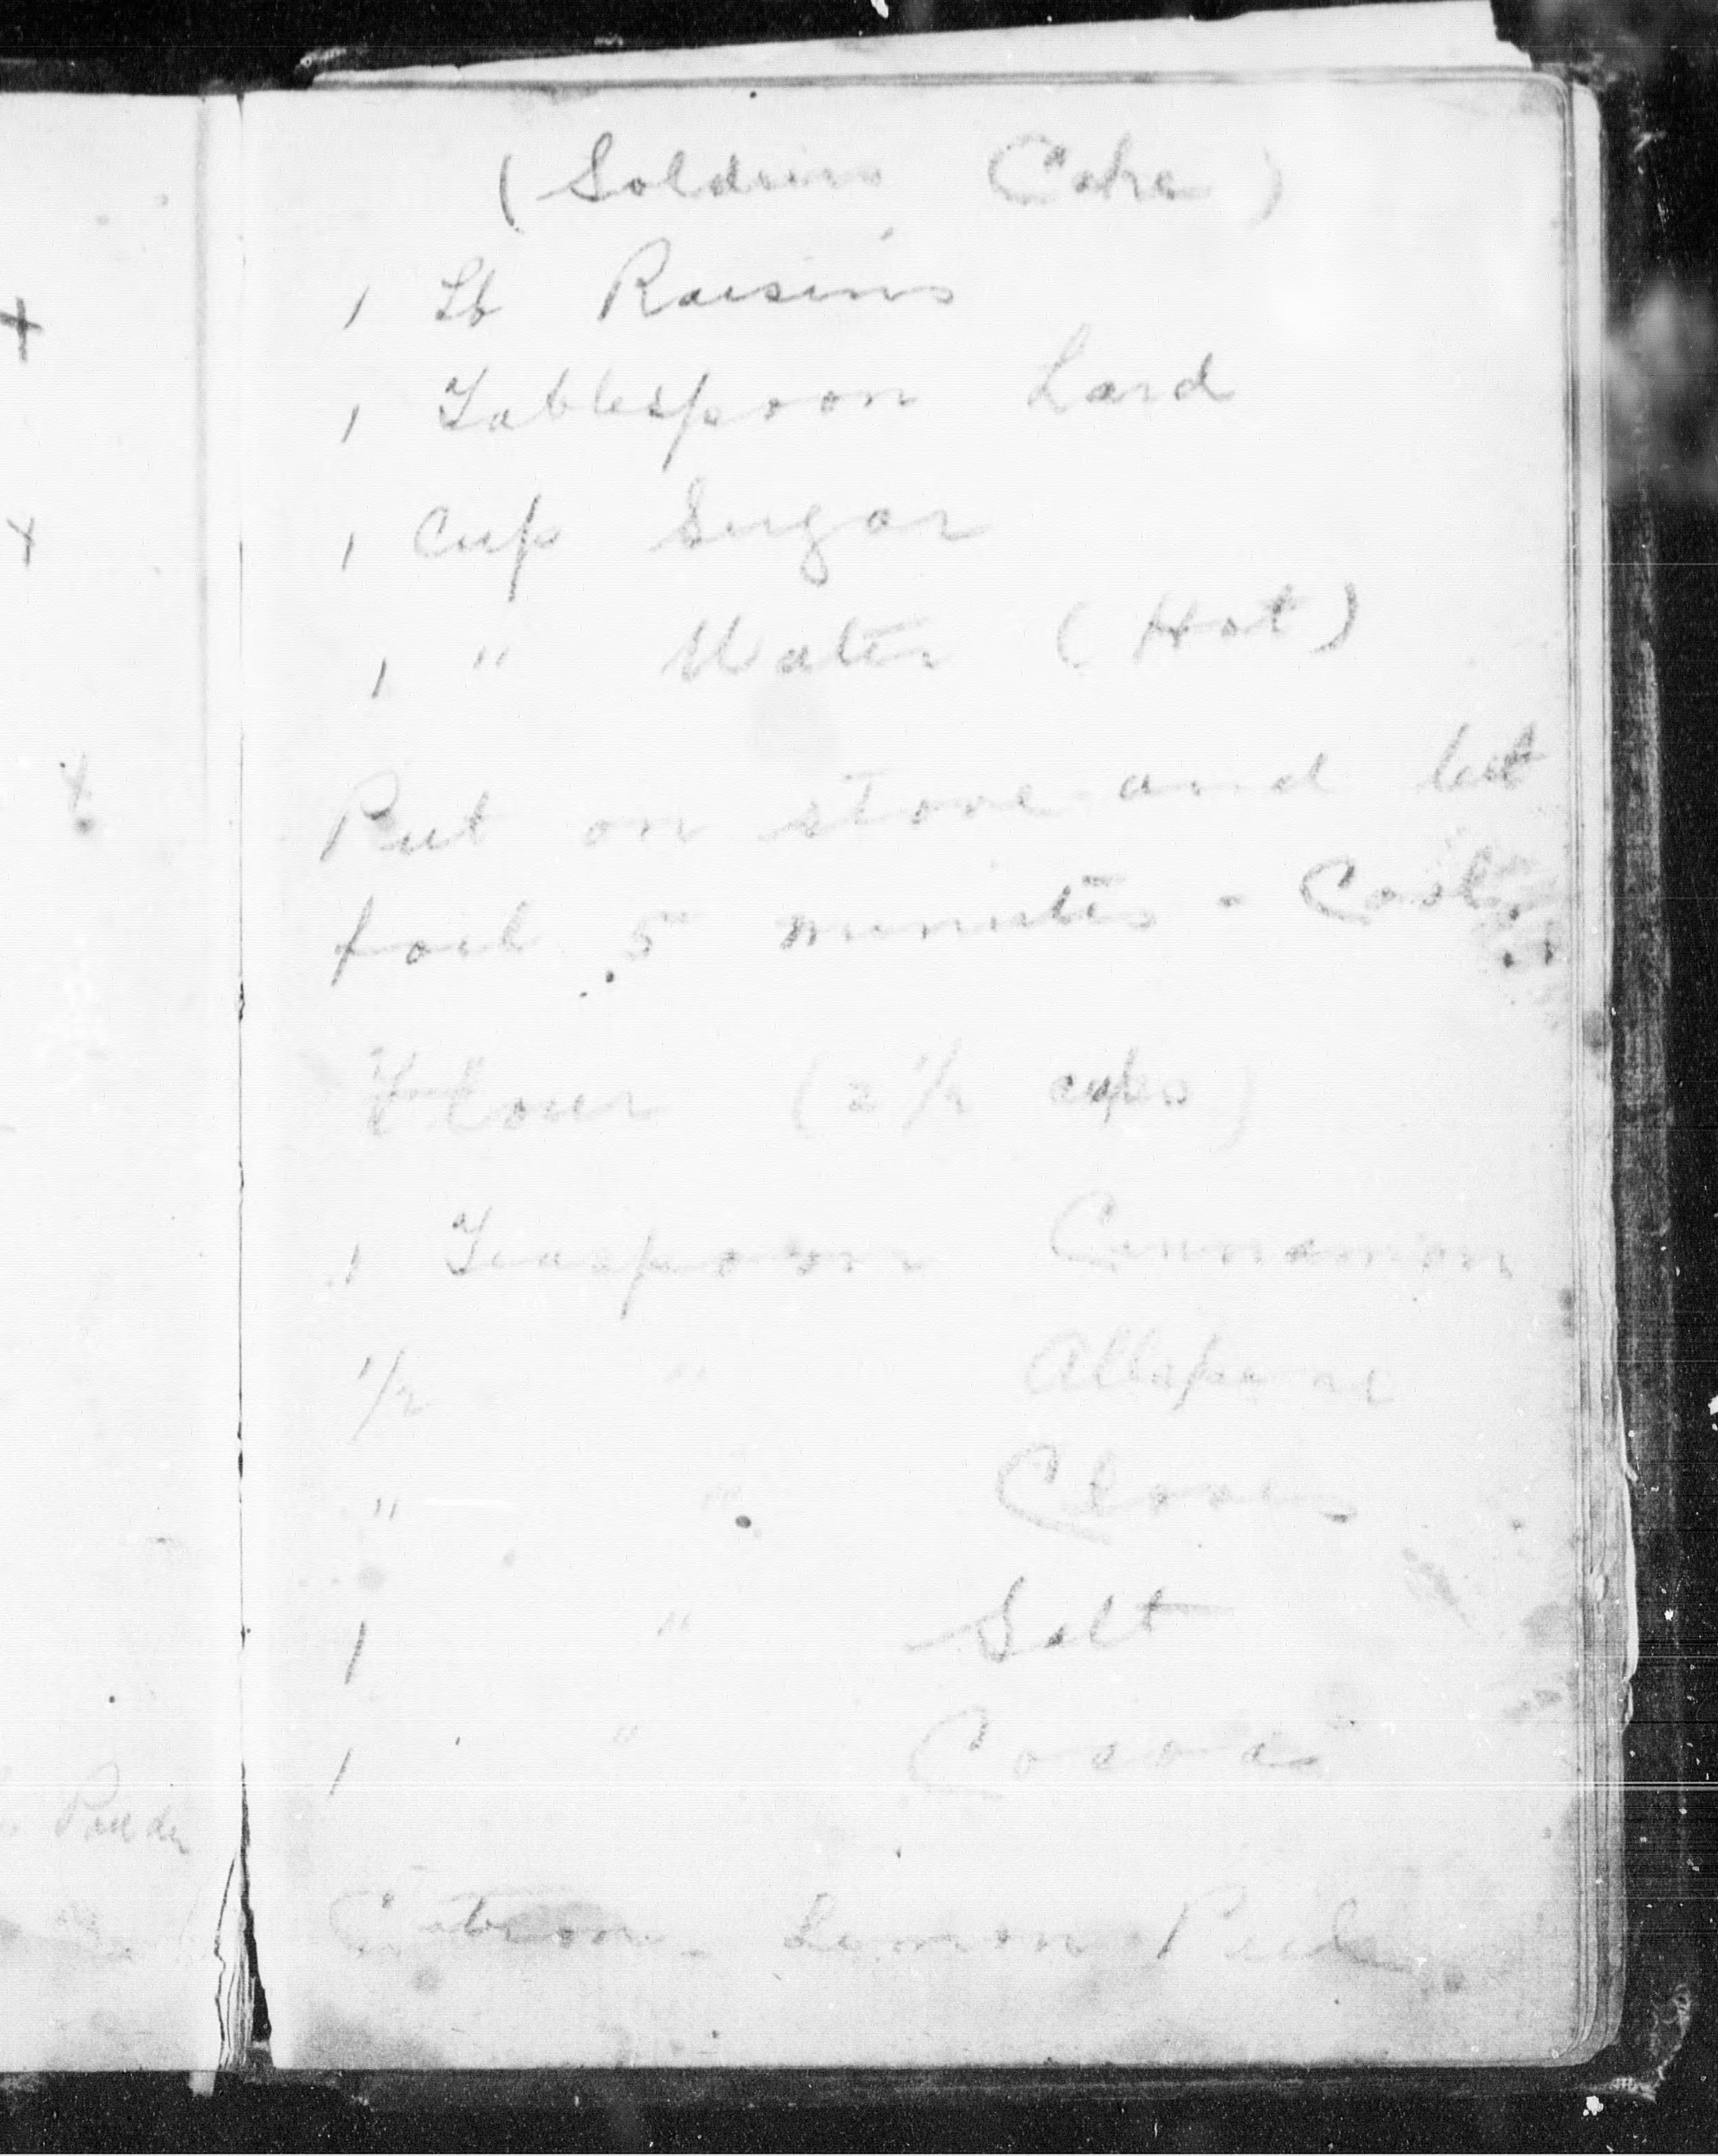 (Soldiers Cake)
1 Lb Raisins
1 Tablespoon Lard
1 Cup Sugar
1 " Water (Hot)
Put on stove and let
boil 5 minutes - Cool.
Flour (2 1/2 cups)
1 Teaspoon Cinnamon
1/2 " Allspice
" " Cloves
1 " Salt
1 " Cocoa
Citron - Lemon Peel